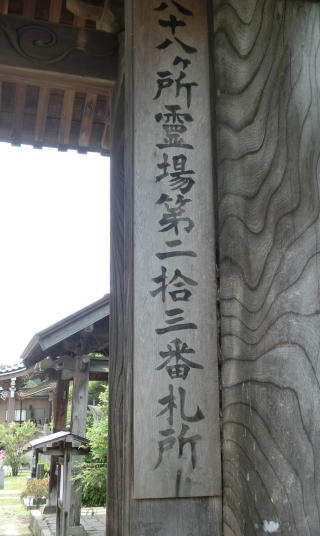 八十八ヶ所霊場第二拾三番札所